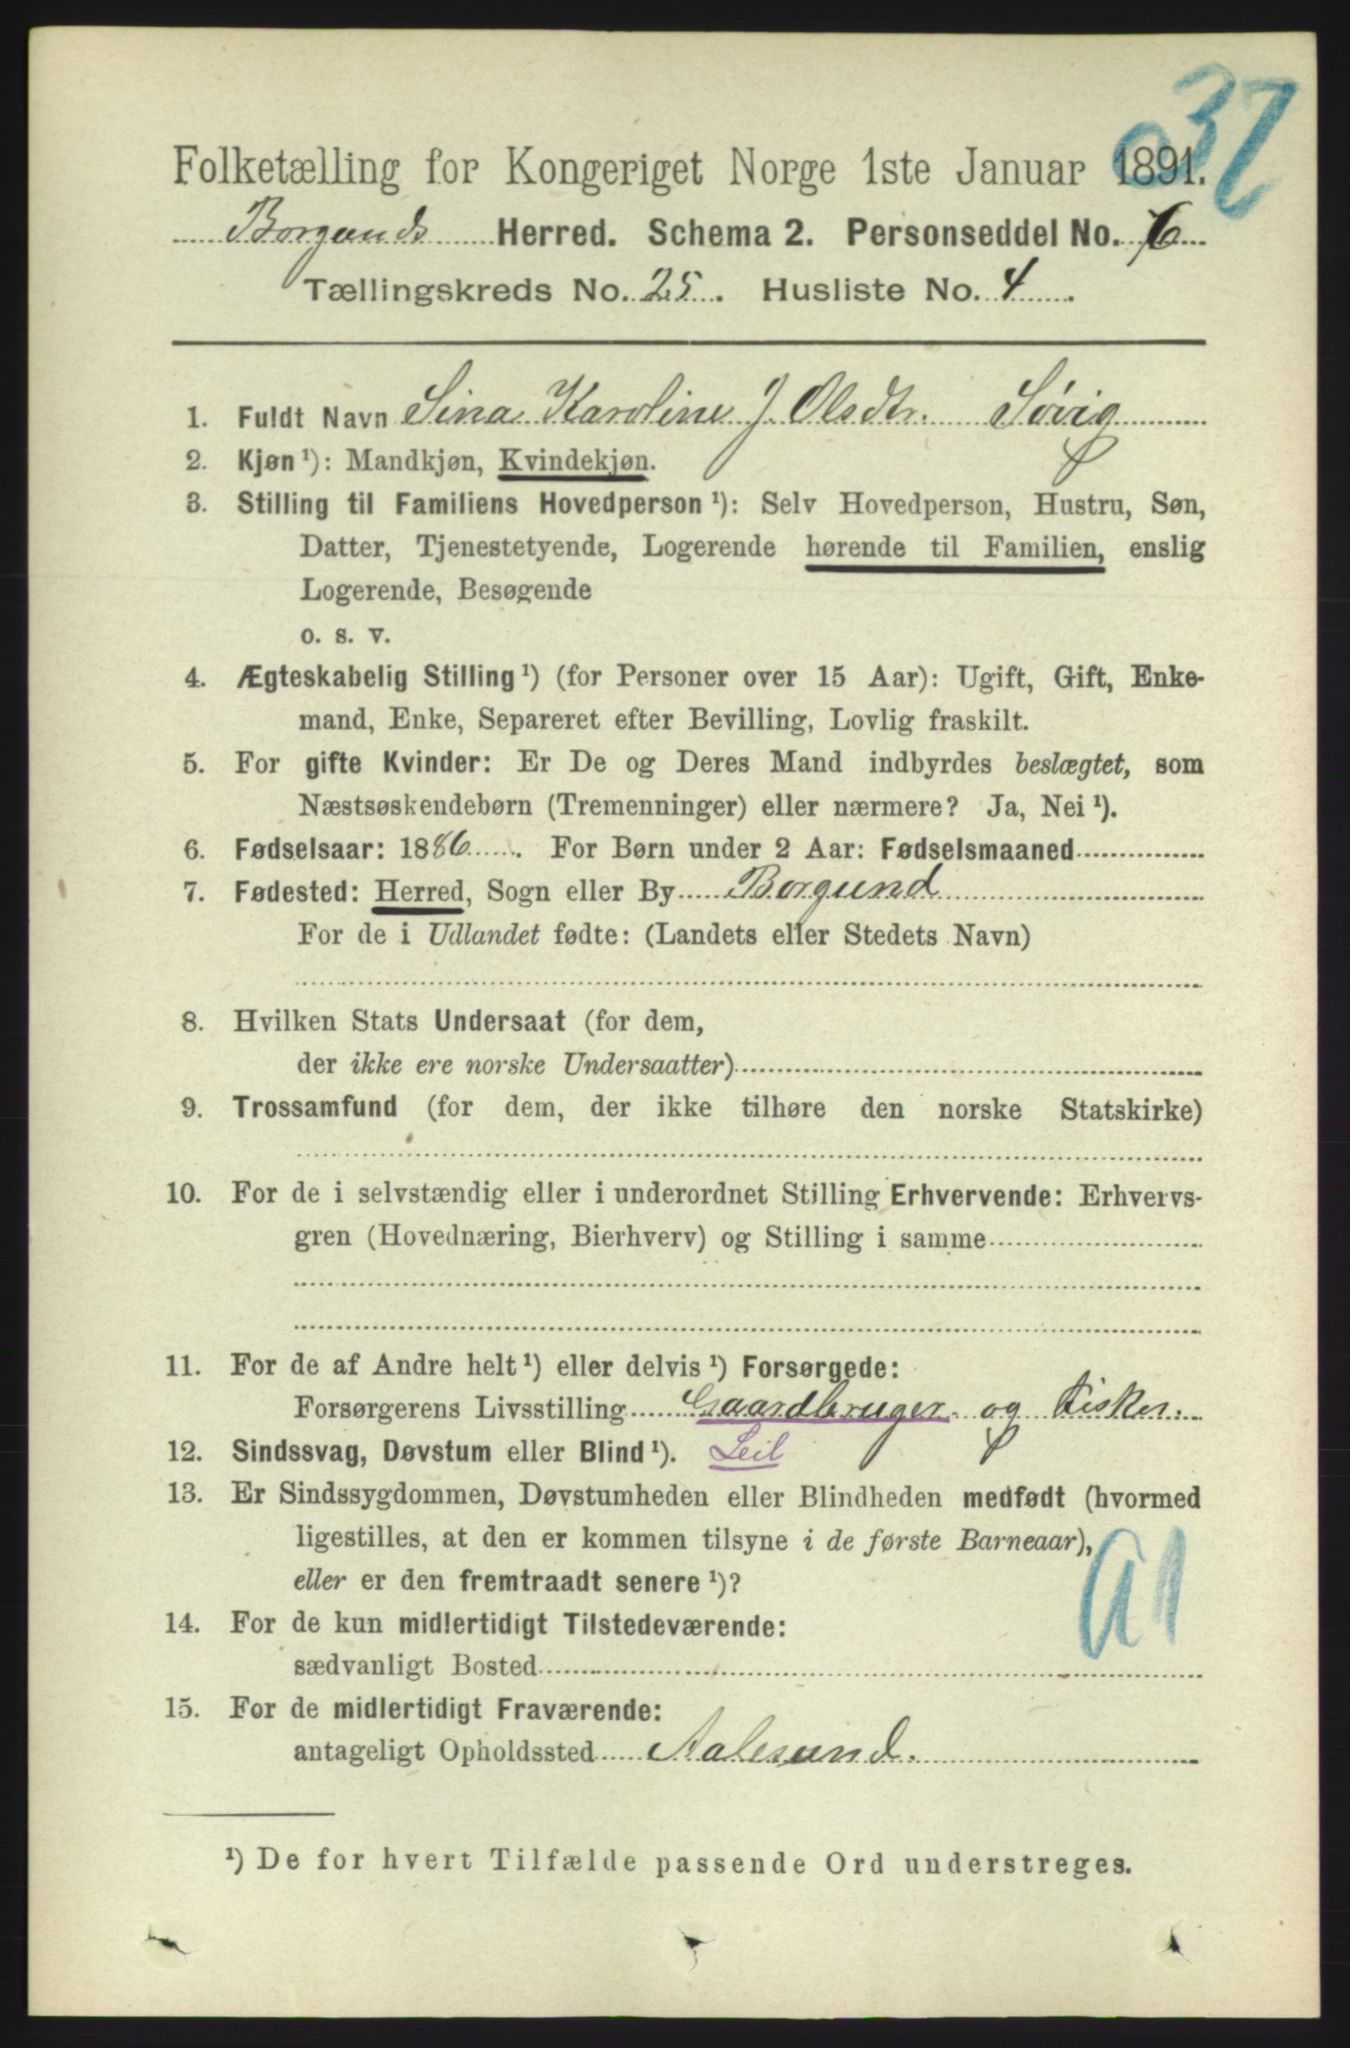 037
Folketælling for Kongeriget Norge 1ste Januar 1891.
Borgunds Herred. Schema 2. Personseddel No. 6
Tællingskreds No. 25. Husliste No. 4.
1. Fuldt Navn Sina Karoline J. Olsdtr. Søvig
2. Kjøn ¹): Mandkjøn, Kvindekjøn.
3. Stilling til Familiens Hovedperson ¹): Selv Hovedperson, Hustru, Søn,
Datter, Tjenestetyende, Logerende hørende til Familien, enslig
Logerende, Besøgende
o. s. v.
4. Ægteskabelig Stilling ¹) (for Personer over 15 Aar): Ugift, Gift, Enke-
mand, Enke, Separeret efter Bevilling, Lovlig fraskilt.
5. For gifte Kvinder: Er De og Deres Mand indbyrdes beslægtet, som
Næstsøskendebørn (Tremenninger) eller nærmere? Ja, Nei ¹).
6. Fødselsaar: 1886. For Børn under 2 Aar: Fødselsmaaned
7. Fødested: Herred, Sogn eller By Borgund
For de i Udlandet fødte: (Landets eller Stedets Navn)
8. Hvilken Stats Undersaat (for dem,
der ikke ere norske Undersaatter)
9. Trossamfund (for dem, der ikke tilhøre den norske Statskirke)
10. For de i selvstændig eller i underordnet Stilling Erhvervende: Erhvervs-
gren (Hovednæring, Bierhverv) og Stilling i samme
11. For de af Andre helt ¹) eller delvis ¹) Forsørgede:
Forsørgerens Livsstilling Gaardbruger og Fisker.
12. Sindssvag, Døvstum eller Blind ¹). Leil
13. Er Sindssygdommen, Døvstumheden eller Blindheden medfødt (hvormed
ligestilles, at den er kommen tilsyne i de første Barneaar),
eller er den fremtraadt senere ¹)?
14. For de kun midlertidigt Tilstedeværende:
sædvanligt Bosted
15. For de midlertidigt Fraværende:
antageligt Opholdssted Aalesund.
¹) De for hvert Tilfælde passende Ord understreges.